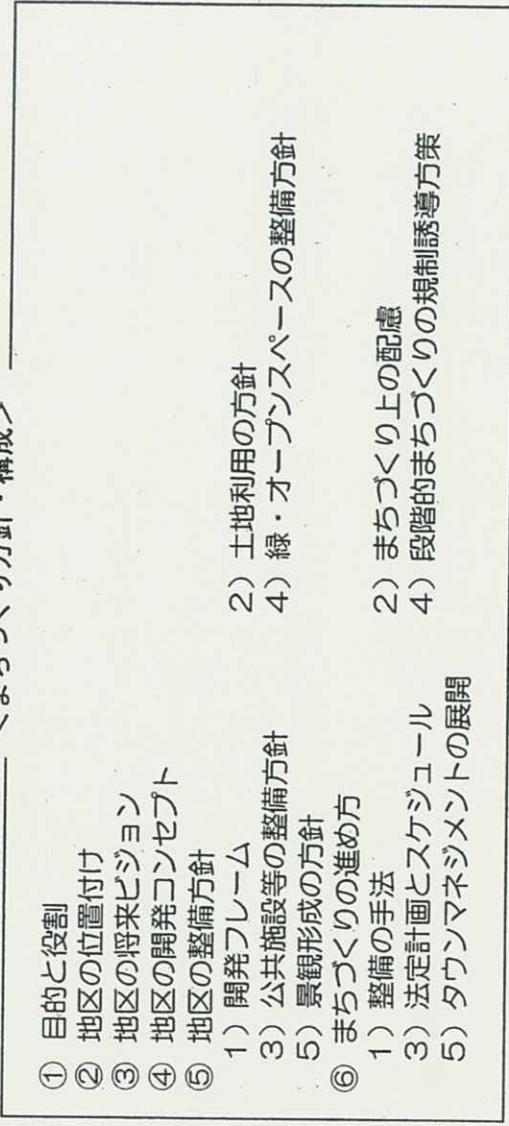 <まちづくり方針・構成>
① 目的と役割
② 地区の位置付け
③ 地区の将来ビジョン
④ 地区の開発コンセプト
⑤ 地区の整備方針
1）開発フレーム 2）土地利用の方針
3）公共施設等の整備方針 4）緑・オープンスペースの整備方針
5）景観形成の方針
⑥ まちづくりの進め方
1）整備の手法 2）まちづくり上の配慮
3）法定計画とスケジュール 4）段階的まちづくりの規制誘導方策
5）タウンマネジメントの展開